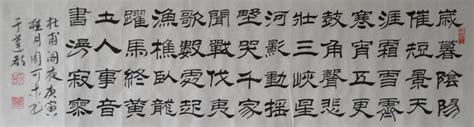 歲暮陰陽
催短景天
涯霜雪霽
寒宵五更
鼓角聲悲
壯三峽星
河影動搖
野哭千家
聞戰伐夷
歌數處起
漁樵臥龍
躍馬終黃
土人事音
書漫寂寥
杜甫閣夜庚寅
桂月周可
于